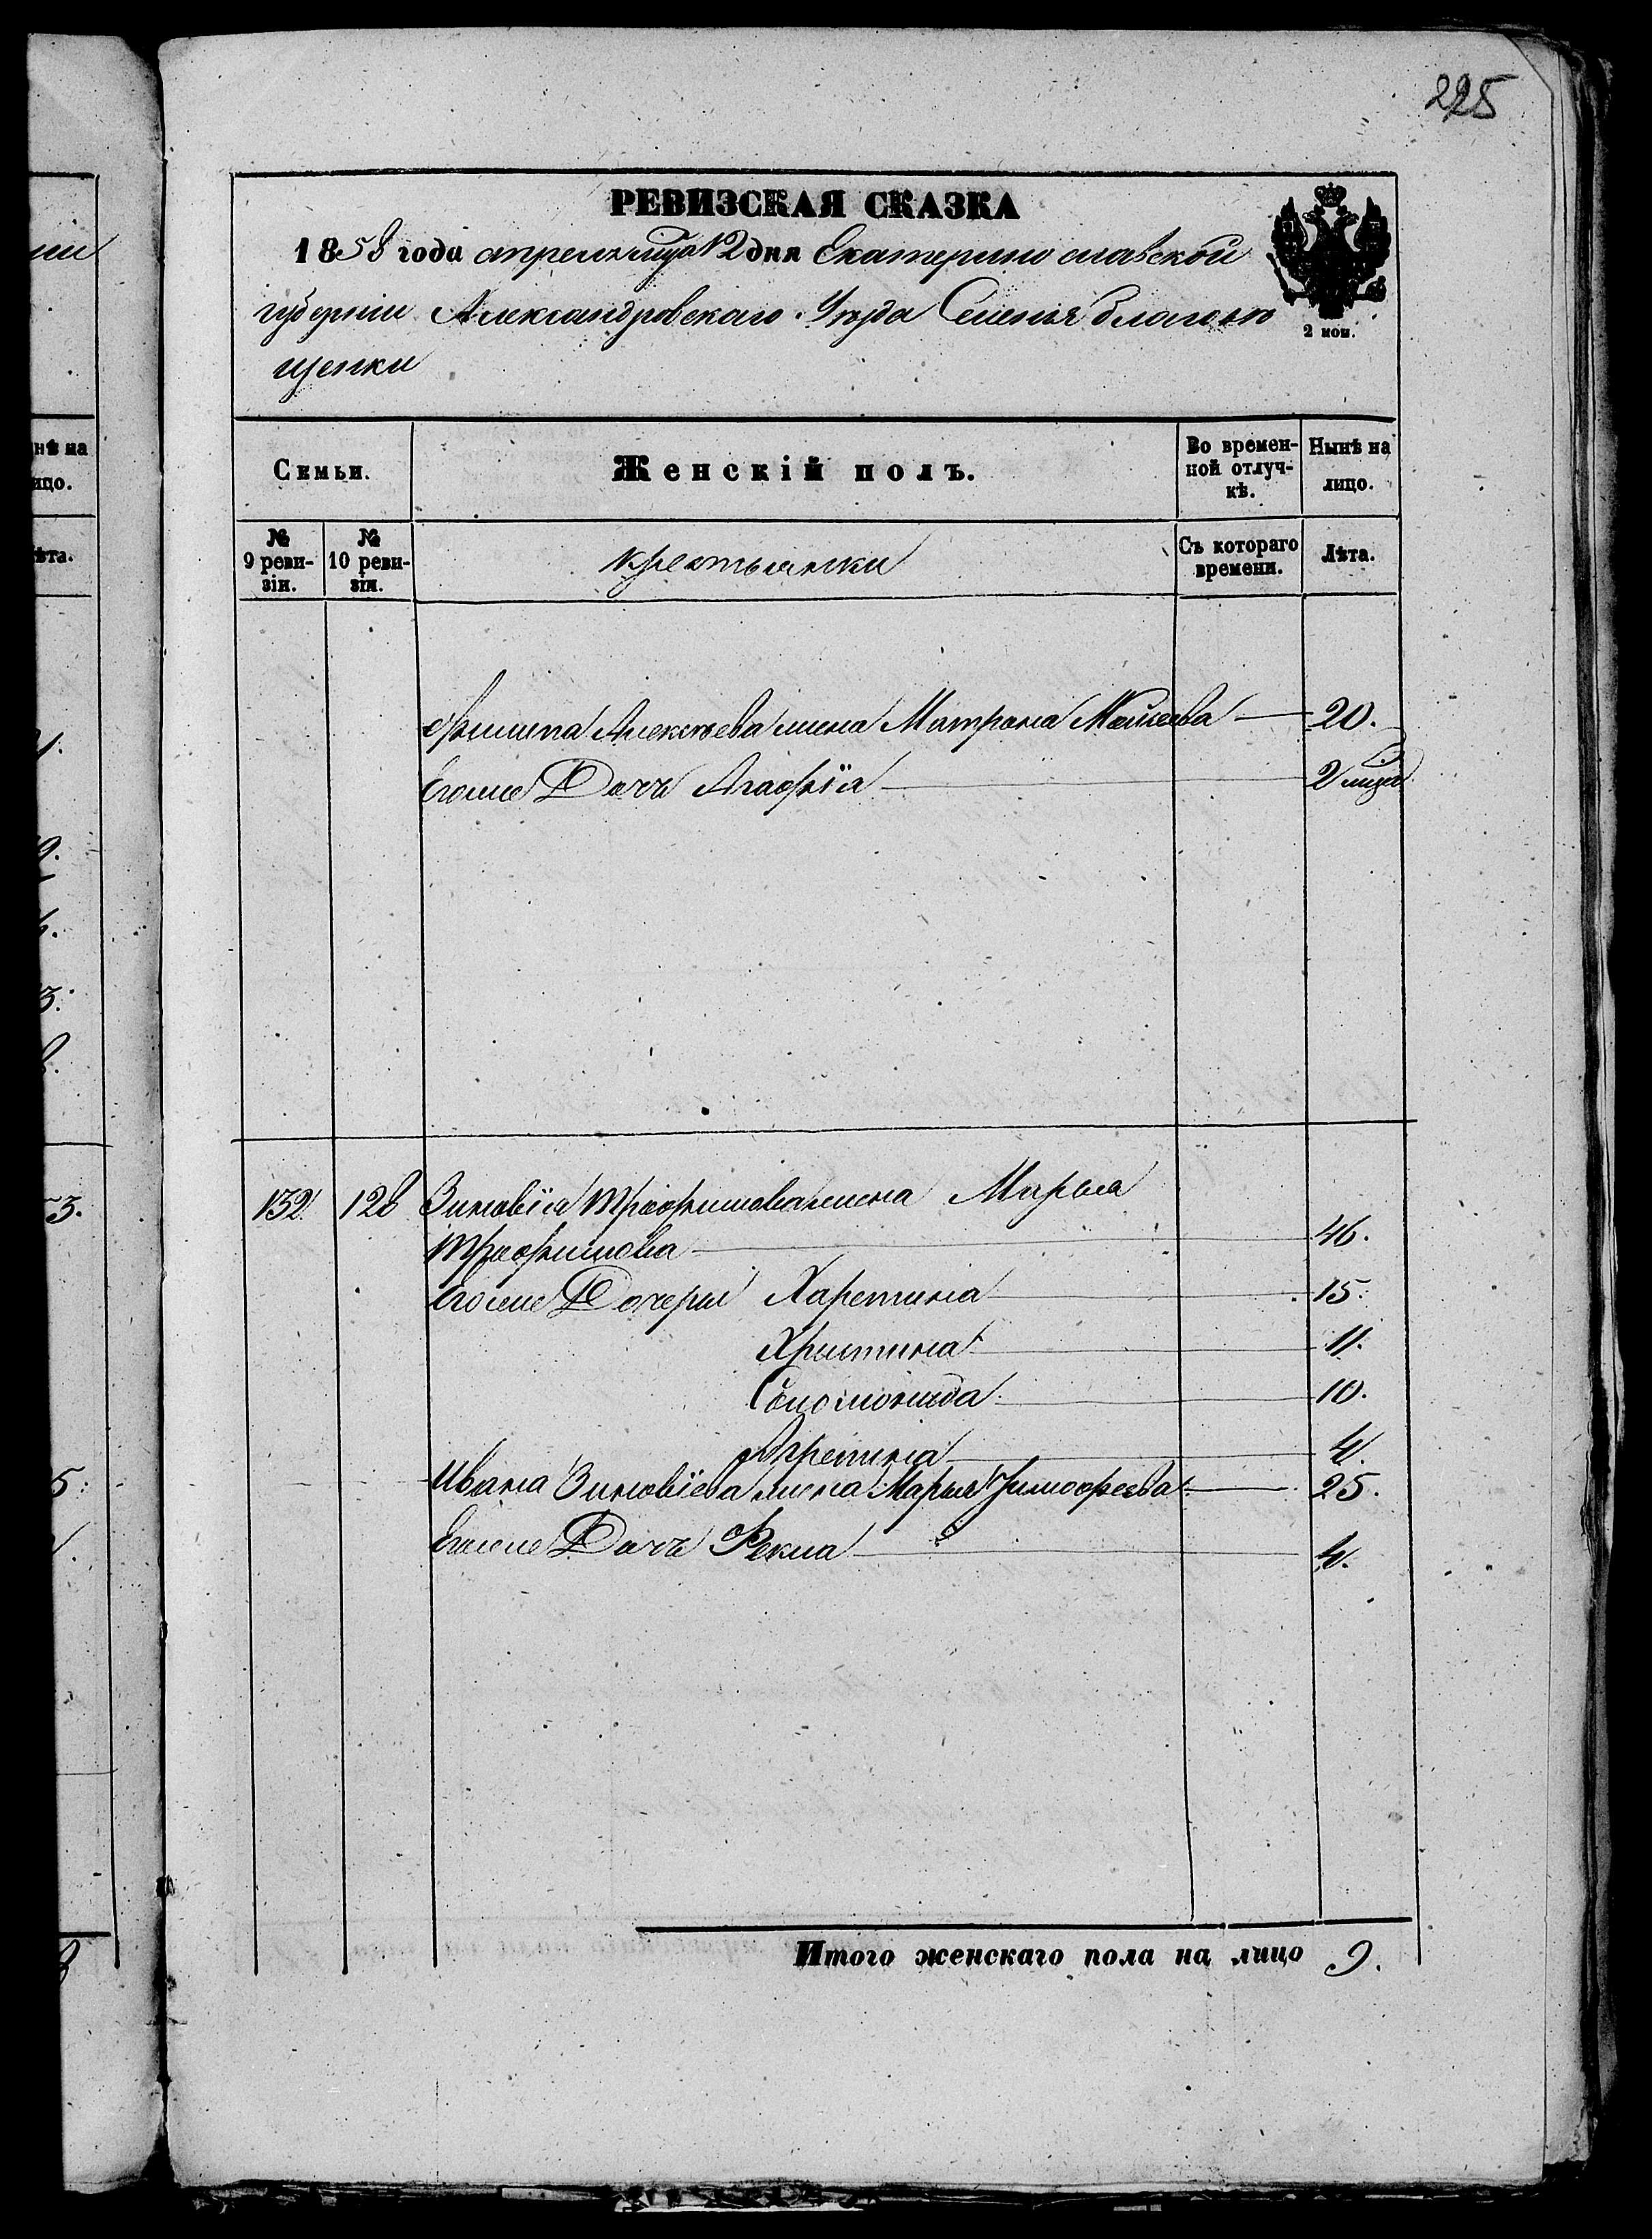 225
РЕВИЗСКАЯ СКАЗКА
1858 года апреля мца 12 дня Екатеринославской
губернiи Александровскаго Уезда Селенiя благове
щенки
2 коп.
Семьи.
Женскiй полъ.
Во времен-
ной отлуч-
кѣ.
Нынѣ на
лицо.
№
9 реви-
зiи.
№
10 реви-
зiи.
крестьянки
Съ котораго
времени.
Лѣта.
Филипа Алексѣева жена Матрона 20.
Егоже Дочь Агафiя 2 мца
132 128 Зиновiя Трофимова жена Марья
Трофимова 46.
Егоже Дочери Харетина 15.
Христина 11.
Соломонида 10.
4.
Ивана Зиновiева жена Марья Тимофеева 25.
Егоже Дочь Фекла 4.
Итого женскаго пола на лицо 9.
нѣ на
ицо.
ѣта.